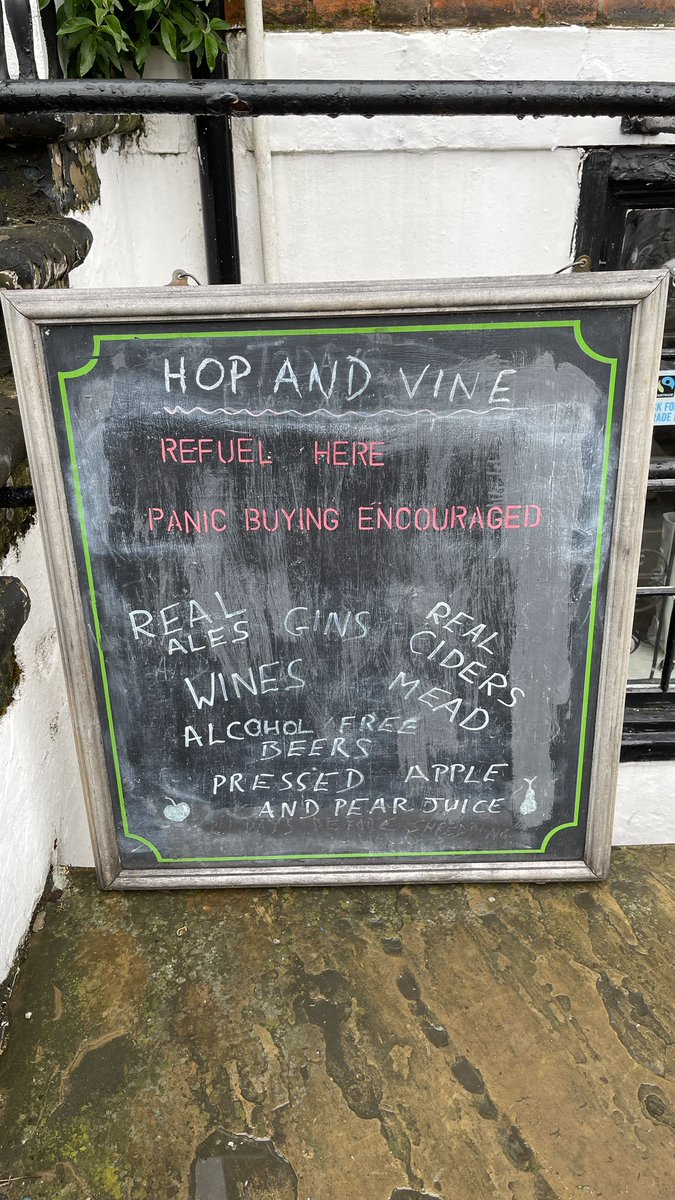 HOP AND VINE
REFUEL HERE
PANIC BUYING ENCOURAGED
REAL
ALES
GINS
REAL
CIDERS
WINES
MEAD
ALCOHOL FREE
BEERS
PRESSED APPLE
AND PEAR JUICE